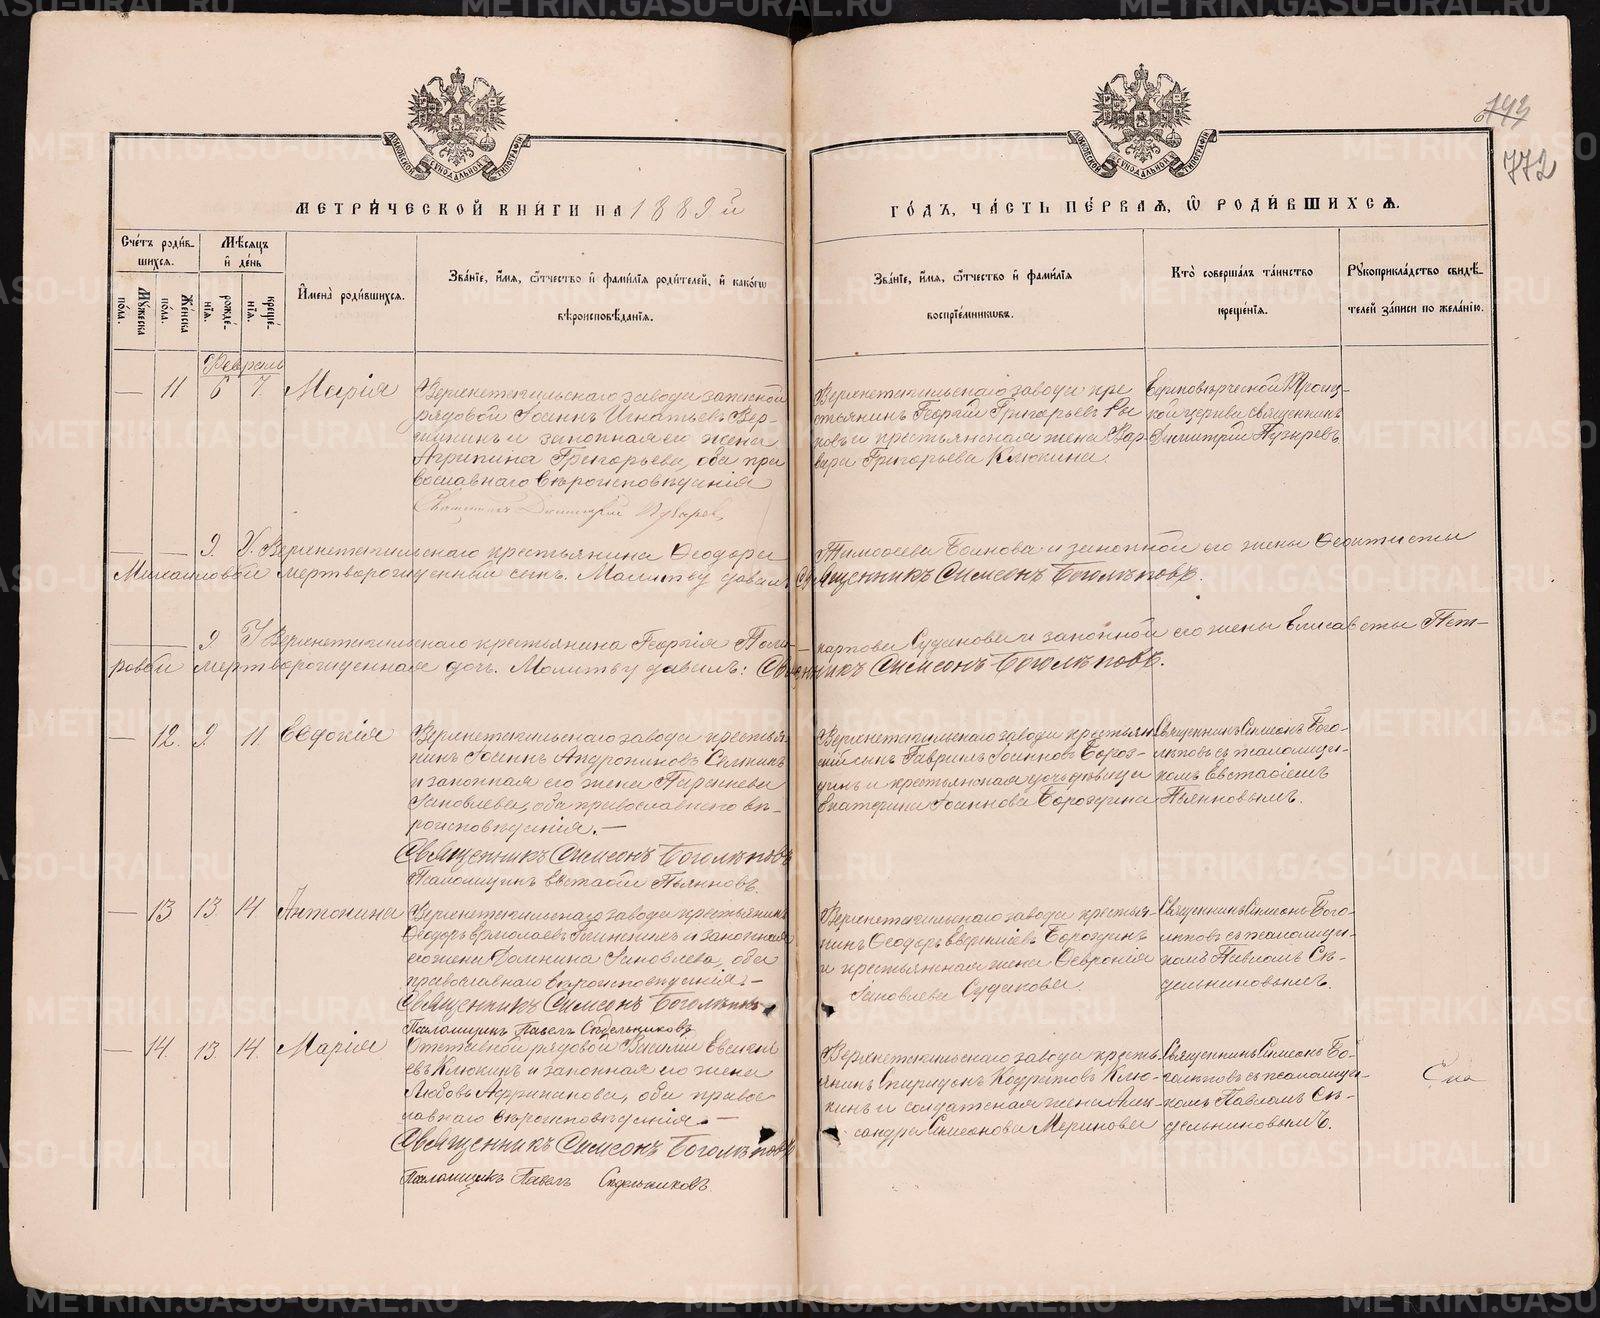 МЕТРИ́ЧЕСКОЙ КНИ́ГИ НА 1889 й
ГО́ДЪ, ЧА́СТЬ ПЕ́РВАѦ, Ѡ҆ РОДИ́ВШИХСѦ.
193
772
Сче́тъ роди́в-
шихсѧ.
Мѣ́сѧцъ
и҆ де́нь
Мꙋ́жеска
по́ла.
Же́нска
по́ла.
рожде́-
нїѧ.
креще́-
нїѧ.
И҆мена̀ роди́вшихсѧ.
Зва́нїе, и҆́мѧ, ѻ҆́тчество и҆ фами́лїѧ роди́телей, и҆ како́гѡ
вѣроисповѣ́данїѧ.
Зва́нїе, и҆́мѧ, ѻ҆́тчество и҆ фами́лїѧ
воспрїе́мникѡвъ.
Кто̀ соверша́лъ та́инство
креще́нїѧ.
Рꙋкоприкла́дство свидѣ́-
телей за́писи по жела́нїю.
Февраль
— 11 6 7 Марія
Верхнетагильскаго завода запасной
рядовой Іоаннъ Игнатьевъ Вер-
и законная его жена
Агрипина Григорьева, оба пра
вославнаго вѣроисповѣданія
Священникъ Димитрій Пузырев.
Верхнетагильскаго завода кре
стьянинъ Георгій Григорьевъ Ры
ковъ и крестьянская жена Вар-
вара Григорьева Клюкина
Единовѣрческой Троиц-
кой церкви священникъ
Димитрій Пузыревъ
— — 9. У. Верхнетагильскаго крестьянина Ѳеодора Тимоѳеева Боинова и законной его жены Ѳеоктисты
Михаиловой мертворожденный сынъ. Молитву давалъ Священникъ Симеонъ Боголѣповъ.
— — 9. У Верхнетагильскаго крестьянина Георгія Поли- карпова Судакова и законной его жены Елисаветы Пет-
ровой мертворожденная дочь. Молитву давалъ: Священникъ Симеонъ Боголѣповъ.
— 12. 9. 11. Евдокія
Верхнетагильскаго завода крестья
нинъ Іоаннъ Андрониковъ
и законная его жена
Іаковлева, оба православнаго вѣ-
роисповѣданія. —
Священникъ Симеонъ Боголѣповъ
Псаломщикъ Евстаѳій Пьянковъ.
Верхнетагильскаго завода крестьян
скій сынъ Гавріилъ Іоанновъ Бороз-
динъ и крестьянская дочь дѣвица
Екатерина Іоаннова Бороздина
Священникъ Симеонъ Бого-
лѣповъ съ псаломщи-
комъ Евстаѳіемъ
Пьянковымъ.
— 13 13. 14. Антонина
Верхнетагильскаго завода крестьянинъ
Ѳеодоръ Ермолаевъ и законная
его жена Домнина Іаковлева, оба
православнаго вѣроисповѣданія. —
Священникъ Симеонъ Боголѣповъ
Псаломщикъ Павелъ Сѣдельниковъ
Верхнетагильскаго завода крестья-
нинъ Ѳеодоръ Евгеніевъ Бороздинъ
и крестьянская жена Ѳевронія
Іаковлева Судакова.
Священникъ Симеонъ Бого-
лѣповъ съ псаломщи-
комъ Павломъ Сѣ-
дельниковымъ.
— 14. 13. 14. Марія
Отставной рядовой Василій
евъ Клюкинъ и законная его жена
Любовь Африканова, оба право-
славнаго вѣроисповѣданія. —
Священникъ Симеонъ Боголѣповъ
Псаломщикъ Павелъ Сѣдельниковъ.
Верхнетагильскаго завода кресть-
янинъ Спиридонъ Кодратовъ Клю-
кинъ и солдатская жена Алек-
сандра Симеонова Меринова
Священникъ Симеонъ Бо-
голѣповъ съ псаломщи-
комъ Павломъ Сѣ-
дельниковымъ.